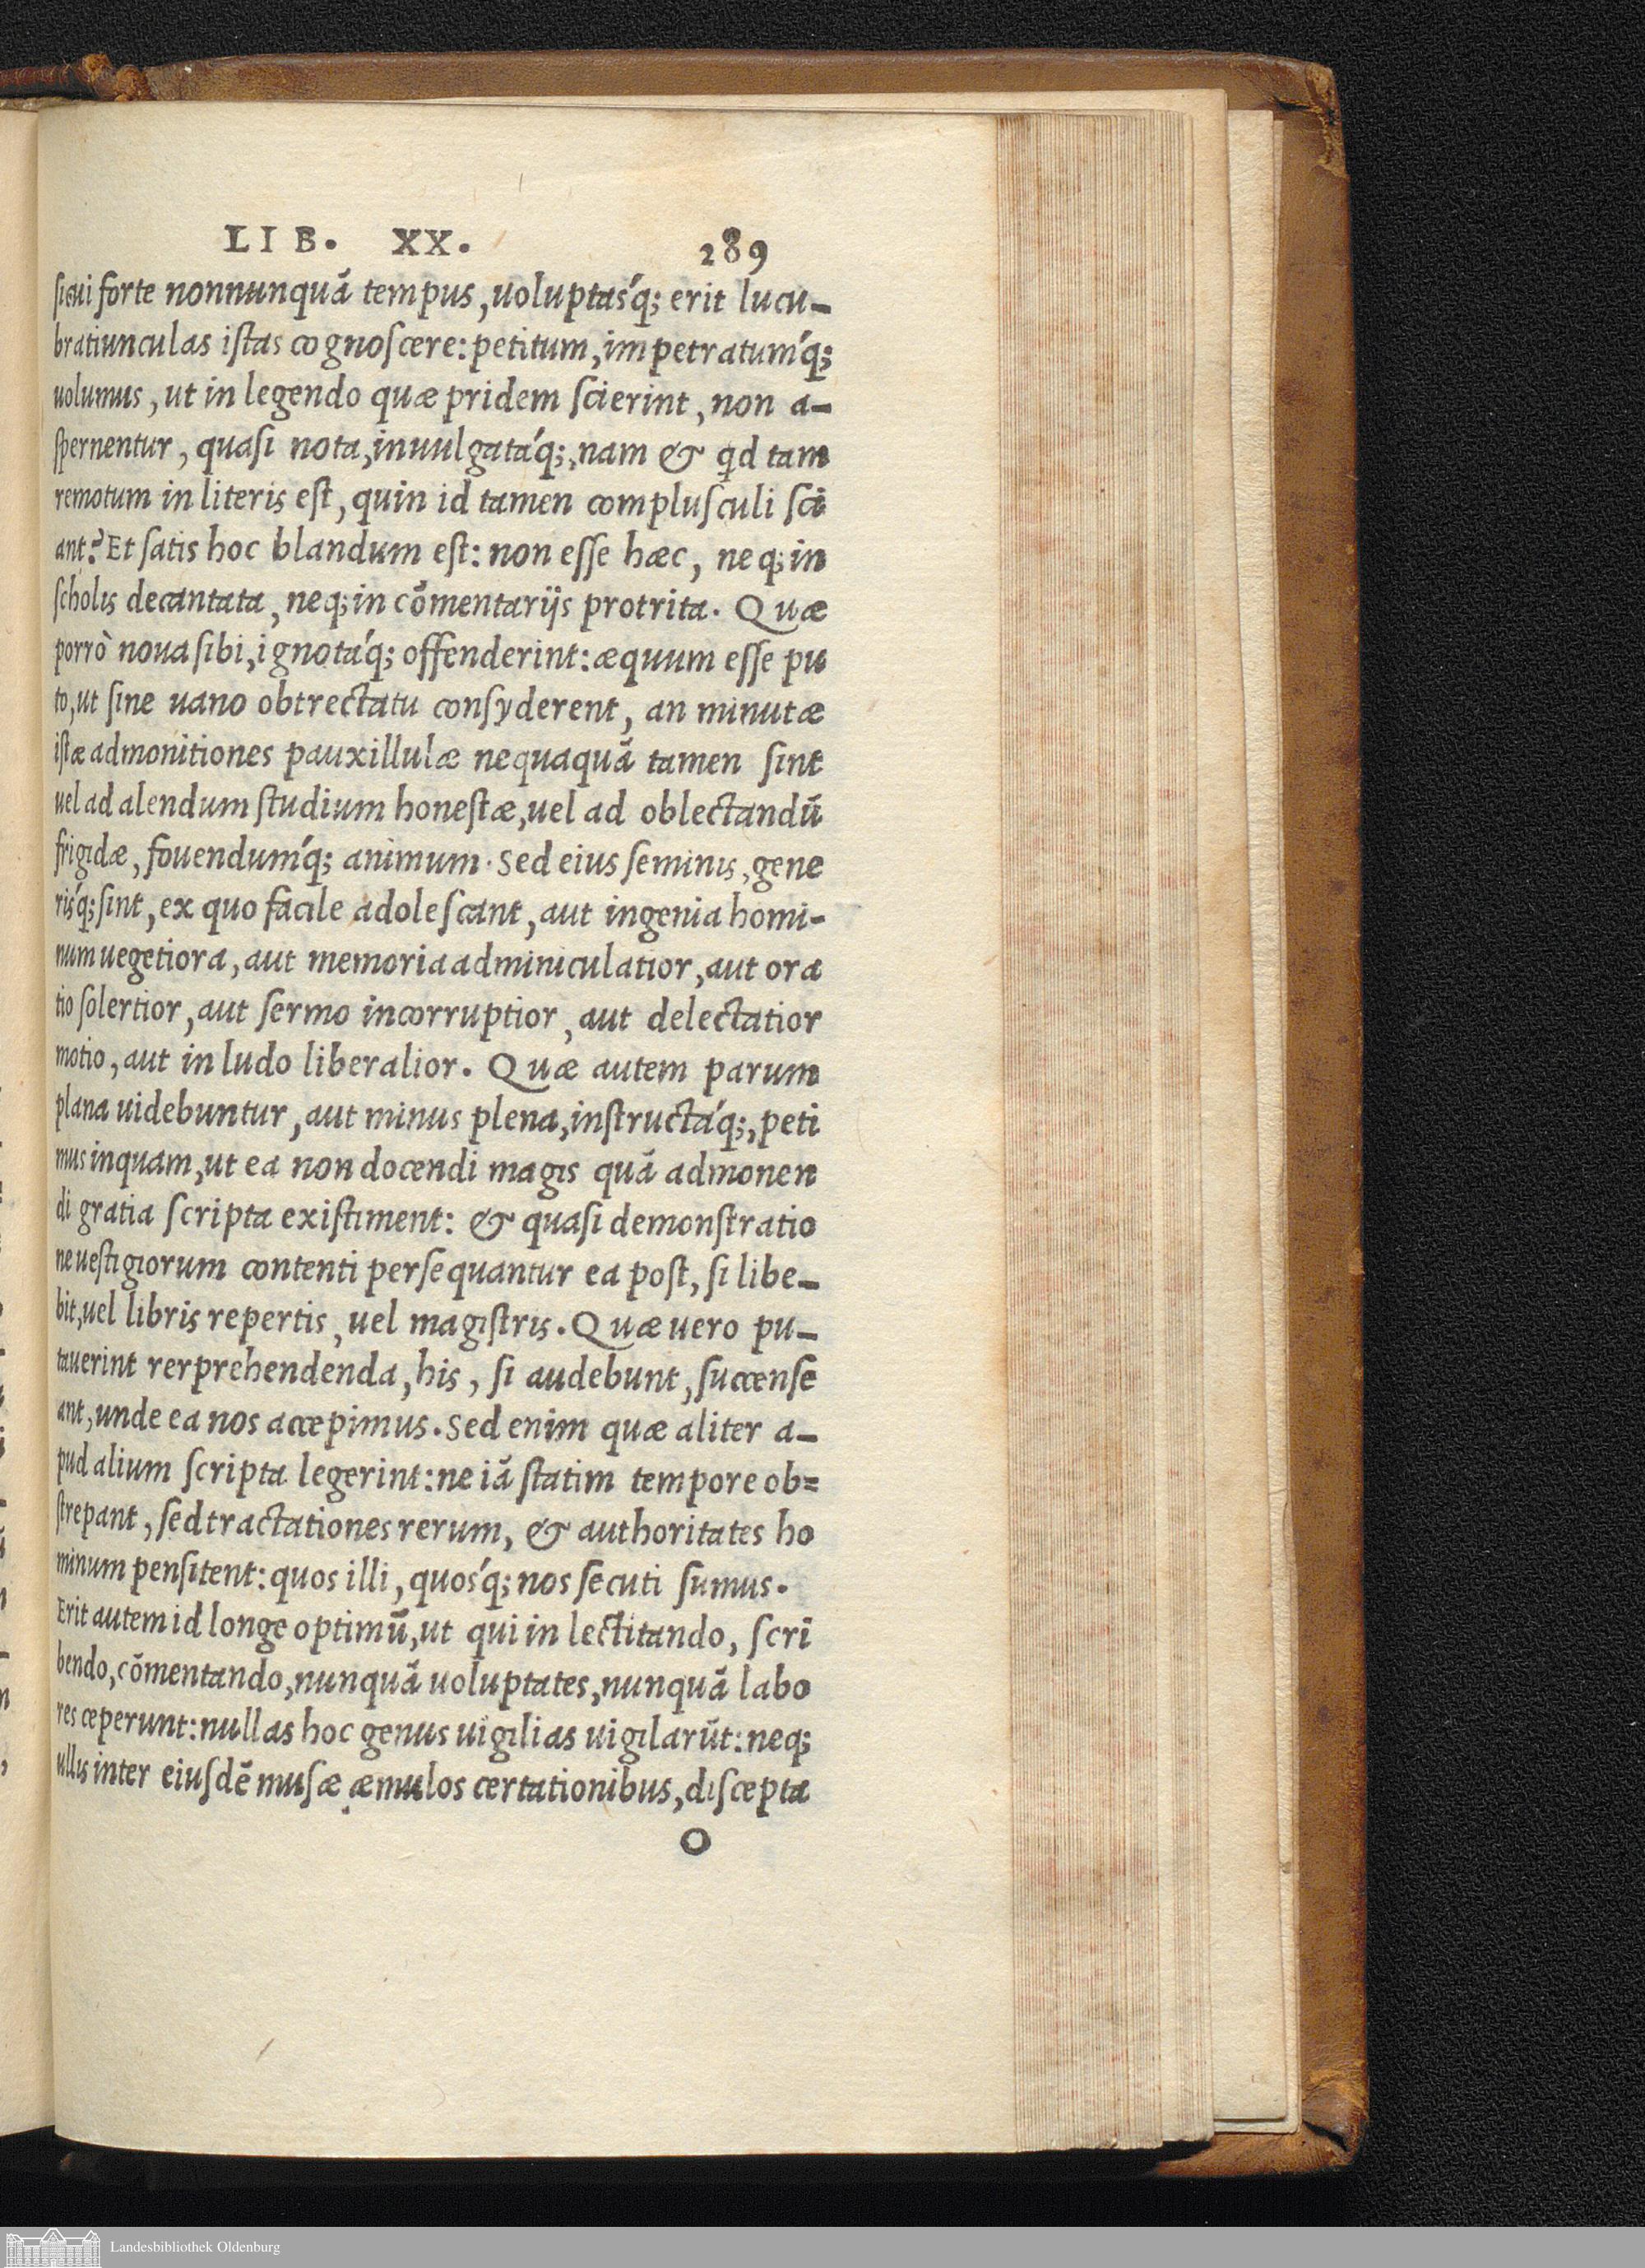 LIB. XX. 289
sicui forte nonnunquā tempus, uoluptas´q; erit lucu-
bratiunculas istas cognoscere: petitum, impetratum´q;
uolumus, ut in legendo quæ pridem scierint, non a-
spernentur, quasi nota, inuulgata´q;, nam & qd tam
remotum in literis est, quin id tamen complusculi sci
ant? Et satis hoc blandum est: non esse hæc, neq; in
scholis decantata, neq; in cōmentarijs protrita. Quæ
porrò noua sibi, ignota´q; offenderint: æquum esse pu
to, ut sine uano obtrectatu consyderent, an minutæ
istæ admonitiones pauxillulæ nequaquā tamen sint
uel ad alendum studium honestæ, uel ad oblectandū
frigidæ, fouendum´q; animum. Sed eius seminis, gene
ris´q; sint, ex quo facile adolescant, aut ingenia homi-
num uegetiora, aut memoria adminiculatior, aut ora
tio solertior, aut sermo incorruptior, aut delectatior
motio, aut in ludo liberalior. Quæ autem parum
plana uidebuntur, aut minus plena, instructa´q;, peti
mus inquam, ut ea non docendi magis quā admonen
di gratia scripta existiment: & quasi demonstratio
ne uestigiorum contenti persequantur ea post, si libe-
bit, uel libris repertis, uel magistris. Quæ uero pu-
tauerint rerprehendenda, his, si audebunt, succense
ant, unde ea nos accepimus. Sed enim quæ aliter a-
pud alium scripta legerint: ne iā statim tempore ob=
strepant, sed tractationes rerum, & authoritates ho
minum pensitent: quos illi, quos´q; nos secuti sumus.
Erit autem id longe optimū, ut qui in lectitando, scri
bendo, cōmentando, nunquā uoluptates, nunquā labo
res ceperunt: nullas hoc genus uigilias uigilarūt: neq;
ullis inter eiusdē musæ æmulos certationibus, discepta
O
Landesbibliothek Oldenburg